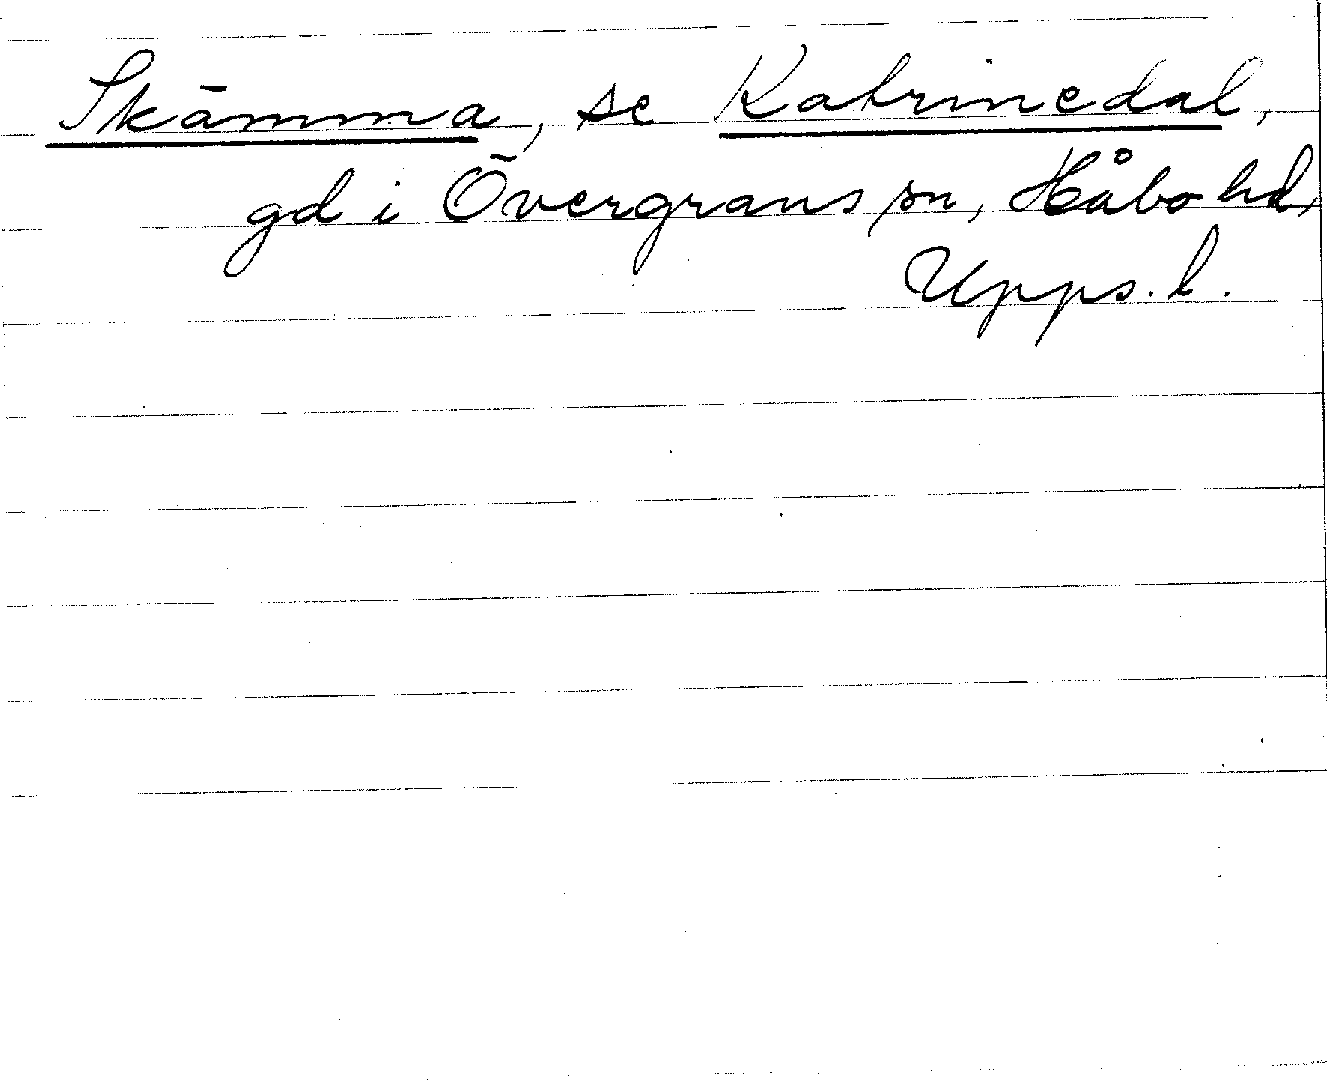 Skämma, se Katrinedal,
gd i Övergrans sn, Håbo hd,
Upps. l.